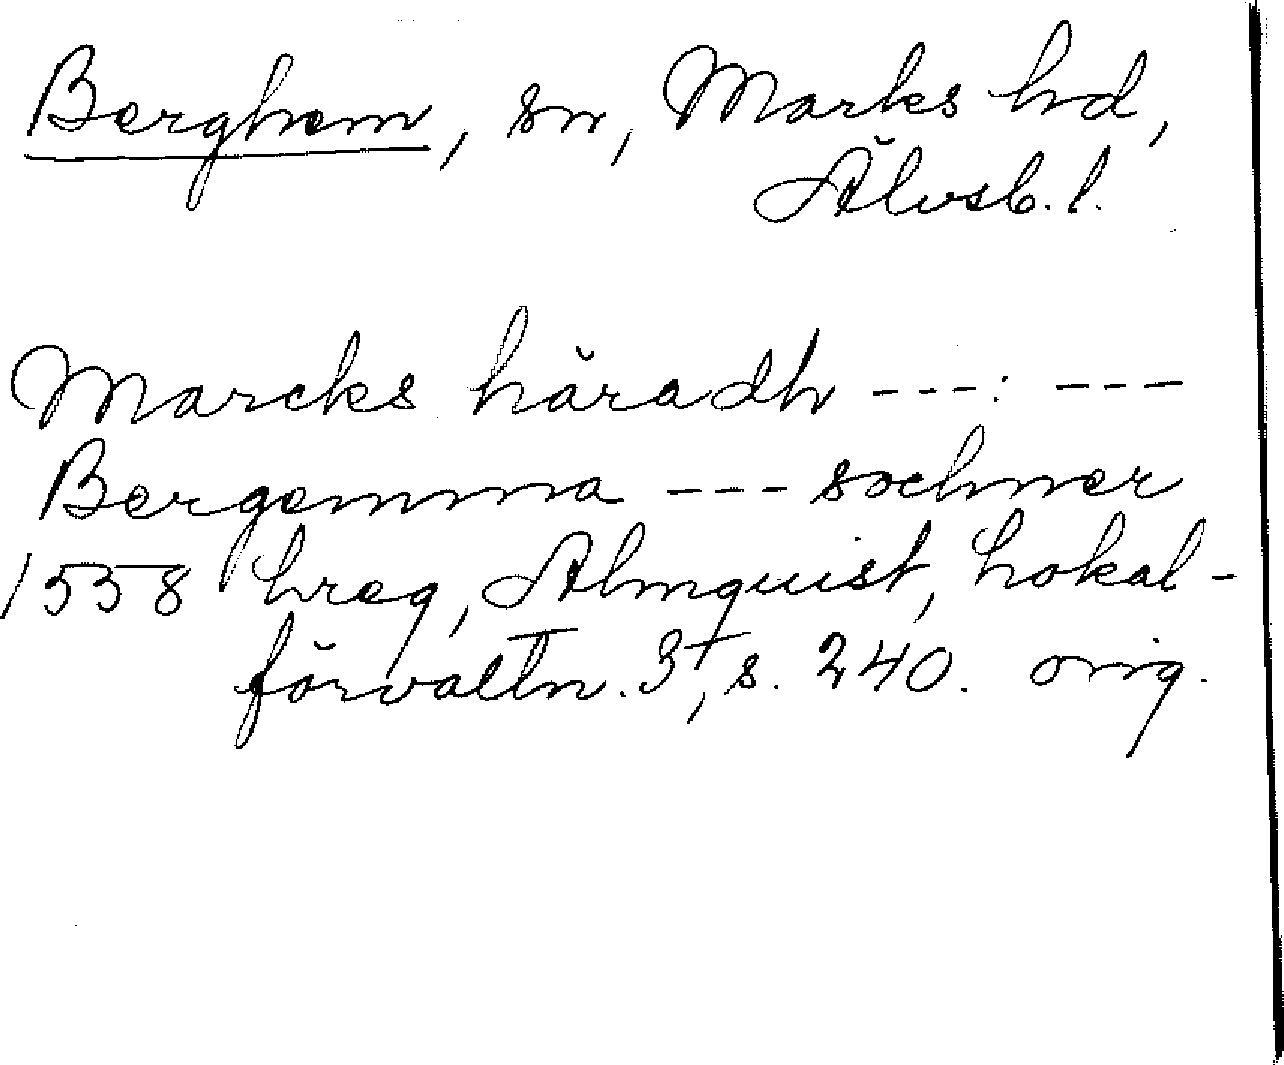 Berghem, sn, Marks hd,
Älvsb. l.
Marcks häradh ---: ---
Bergemma --- sochner
1558 Lreg, Almquist, Lokal-
förvaltn. 3, s. 240. orig.